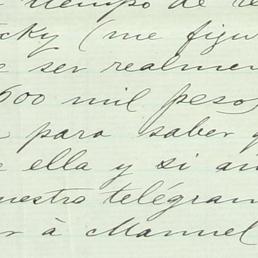 tiempo de te
cky (me figu
e ser realmen
500 mil pesos
para saber q
e ella y si aú
uestro telégram
r á Manuel